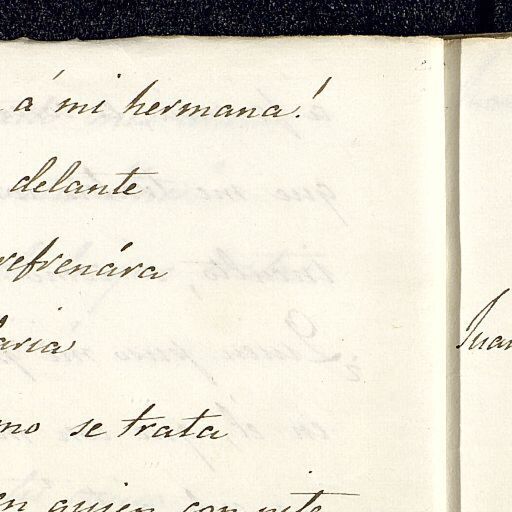 á mi hermana!
delante
refrenára
aria
mo se trata
en quien con
Juan